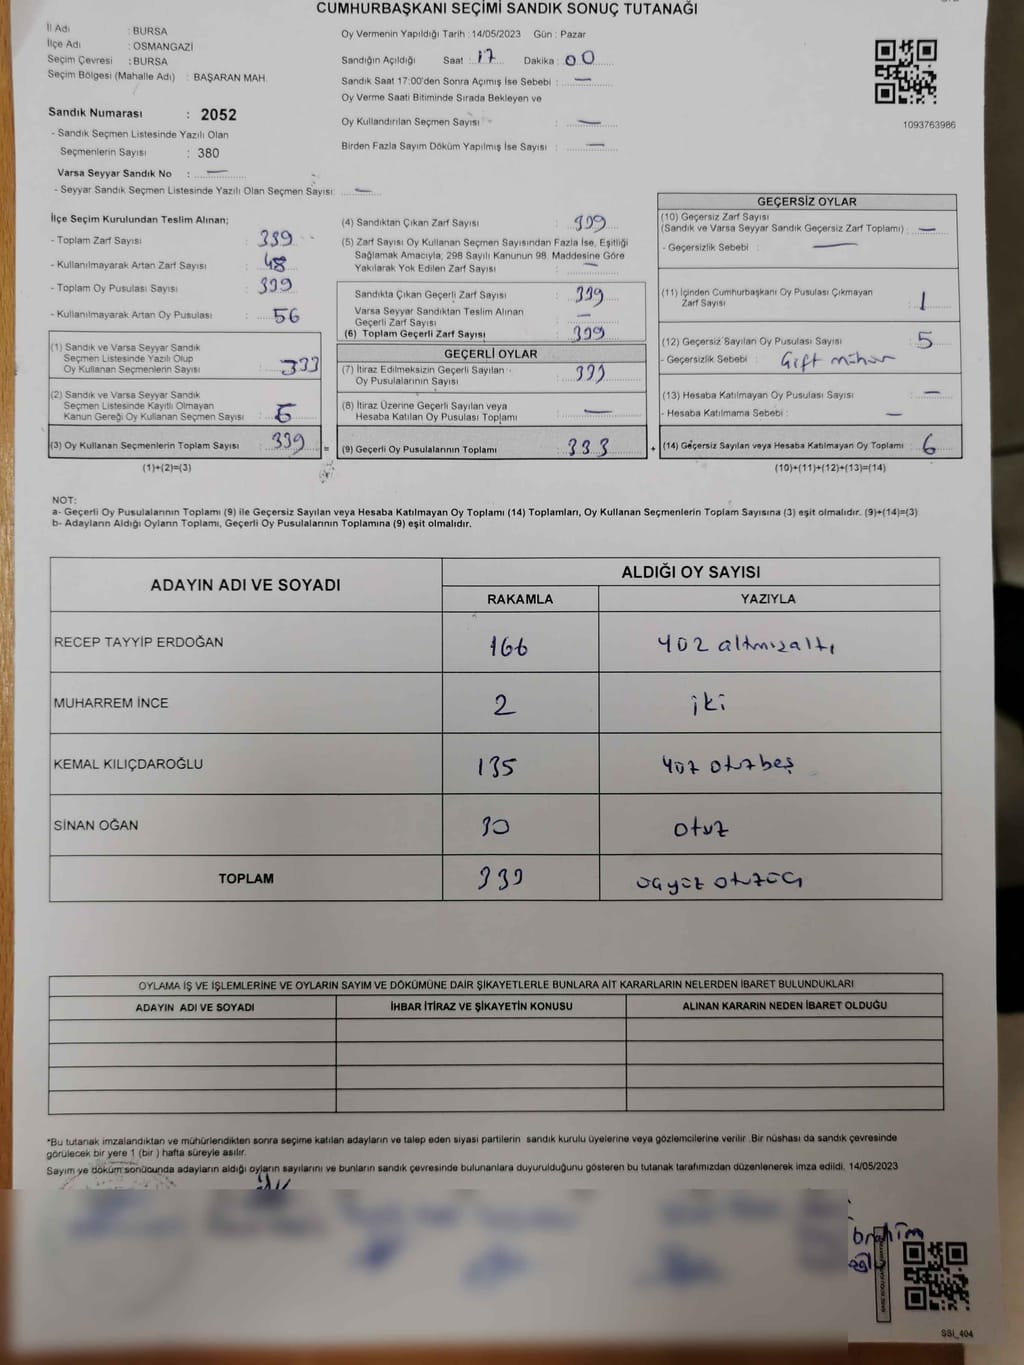 CUMHURBAŞKANI SEÇİMİ SANDIK SONUÇ TUTANAĞI
İl Adı : BURSA
İlçe Adı : OSMANGAZİ
Seçim Çevresi : BURSA
Seçim Bölgesi (Mahalle Adı) : BAŞARAN MAH.
Sandık Numarası : 2052
- Sandık Seçmen Listesinde Yazılı Olan
Seçmenlerin Sayısı : 380
Varsa Seyyar Sandık No : —
- Seyyar Sandık Seçmen Listesinde Yazılı Olan Seçmen Sayısı : —
Oy Vermenin Yapıldığı Tarih : 14/05/2023 Gün : Pazar
Sandığın Açıldığı Saat : 17 Dakika : 00
Sandık Saat 17:00'den Sonra Açılmış İse Sebebi : —
Oy Verme Saati Bitiminde Sırada Bekleyen ve
Oy Kullandırılan Seçmen Sayısı : —
Birden Fazla Sayım Döküm Yapılmış İse Sayısı : —
1093763986
İlçe Seçim Kurulundan Teslim Alınan;
- Toplam Zarf Sayısı : 339
- Kullanılmayarak Artan Zarf Sayısı : 48
- Toplam Oy Pusulası Sayısı : 339
- Kullanılmayarak Artan Oy Pusulası : 56
(1) Sandık ve Varsa Seyyar Sandık
Seçmen Listesinde Yazılı Olup
Oy Kullanan Seçmenlerin Sayısı : 333
(2) Sandık ve Varsa Seyyar Sandık
Seçmen Listesinde Kayıtlı Olmayan
Kanun Gereği Oy Kullanan Seçmen Sayısı : 6
(3) Oy Kullanan Seçmenlerin Toplam Sayısı : 339
(1)+(2)=(3)
(4) Sandıktan Çıkan Zarf Sayısı : 339
(5) Zarf Sayısı Oy Kullanan Seçmen Sayısından Fazla İse, Eşitliği
Sağlamak Amacıyla; 298 Sayılı Kanunun 98. Maddesine Göre
Yakılarak Yok Edilen Zarf Sayısı : —
Sandıkta Çıkan Geçerli Zarf Sayısı : 339
Varsa Seyyar Sandıktan Teslim Alınan
Geçerli Zarf Sayısı : —
(6) Toplam Geçerli Zarf Sayısı : 339
GEÇERLİ OYLAR
(7) İtiraz Edilmeksizin Geçerli Sayılan
Oy Pusulalarının Sayısı : 333
(8) İtiraz Üzerine Geçerli Sayılan veya
Hesaba Katılan Oy Pusulası Toplamı : —
= (9) Geçerli Oy Pusulalarının Toplamı : 333
GEÇERSİZ OYLAR
(10) Geçersiz Zarf Sayısı
(Sandık ve Varsa Seyyar Sandık Geçersiz Zarf Toplamı) : —
- Geçersizlik Sebebi : —
(11) İçinden Cumhurbaşkanı Oy Pusulası Çıkmayan
Zarf Sayısı : 1
(12) Geçersiz Sayılan Oy Pusulası Sayısı : 5
- Geçersizlik Sebebi : Çift mühür
(13) Hesaba Katılmayan Oy Pusulası Sayısı : —
- Hesaba Katılmama Sebebi : —
+ (14) Geçersiz Sayılan veya Hesaba Katılmayan Oy Toplamı : 6
(10)+(11)+(12)+(13)=(14)
NOT:
a- Geçerli Oy Pusulalarının Toplamı (9) ile Geçersiz Sayılan veya Hesaba Katılmayan Oy Toplamı (14) Toplamları, Oy Kullanan Seçmenlerin Toplam Sayısına (3) eşit olmalıdır. (9)+(14)=(3)
b- Adayların Aldığı Oyların Toplamı, Geçerli Oy Pusulalarının Toplamına (9) eşit olmalıdır.
ADAYIN ADI VE SOYADI ALDIĞI OY SAYISI
RAKAMLA YAZIYLA
RECEP TAYYİP ERDOĞAN 166 yüz altmışaltı
MUHARREM İNCE 2 iki
KEMAL KILIÇDAROĞLU 135 yüz otuzbeş
SİNAN OĞAN 30 otuz
TOPLAM 333 üçyüz otuzüç
OYLAMA İŞ VE İŞLEMLERİNE VE OYLARIN SAYIM VE DÖKÜMÜNE DAİR ŞİKAYETLERLE BUNLARA AİT KARARLARIN NELERDEN İBARET BULUNDUKLARI
ADAYIN ADI VE SOYADI İHBAR İTİRAZ VE ŞİKAYETİN KONUSU ALINAN KARARIN NEDEN İBARET OLDUĞU
*Bu tutanak imzalandıktan ve mühürlendikten sonra seçime katılan adayların ve talep eden siyasi partilerin sandık kurulu üyelerine veya gözlemcilerine verilir .Bir nüshası da sandık çevresinde
görülecek bir yere 1 (bir ) hafta süreyle asılır.
Sayım ve döküm sonucunda adayların aldığı oyların sayılarını ve bunların sandık çevresinde bulunanlara duyurulduğunu gösteren bu tutanak tarafımızdan düzenlenerek imza edildi. 14/05/2023
İbrahim
SSİ_404